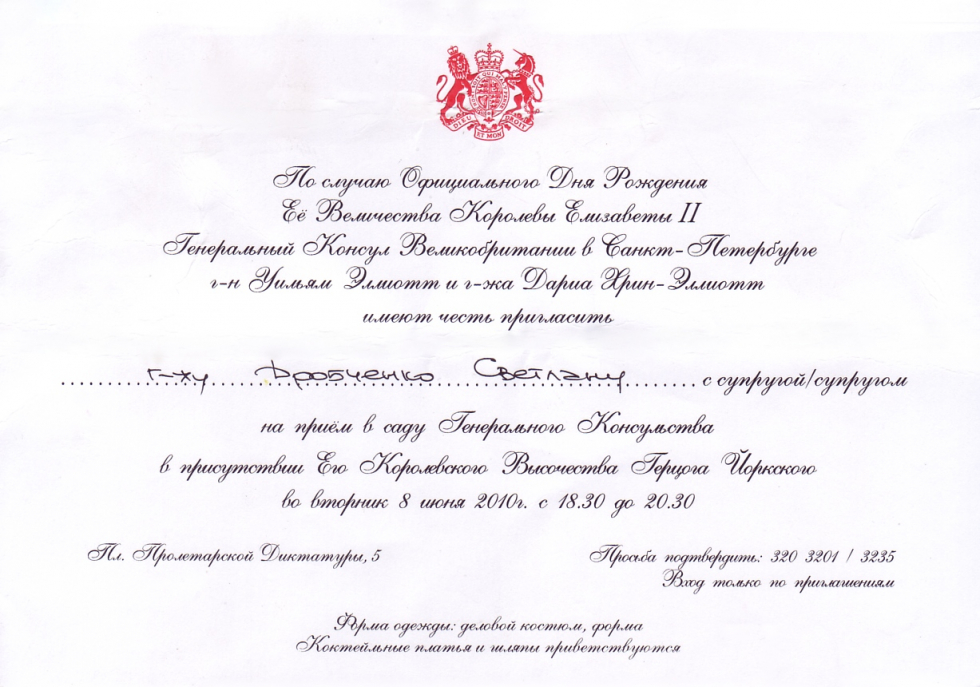 DIEU ET MON DROIT
По случаю Официального Дня Рождения
Её Величества Королевы Елизаветы II
Генеральный Консул Великобритании в Санкт-Петербурге
г-н Уильям Эллиотт и г-жа Дариа Хрин-Эллиотт
имеют честь пригласить
г-жу Дробченко Светлану с супругой/супругом
на приём в саду Генерального Консульства
в присутствии Его Королевского Высочества Герцога Йоркского
во вторник 8 июня 2010г. с 18.30 до 20.30
Пл. Пролетарской Диктатуры, 5
Просьба подтвердить: 320 3201 / 3235
Вход только по приглашениям
Форма одежды: деловой костюм, форма
Коктейльные платья и шляпы приветствуются